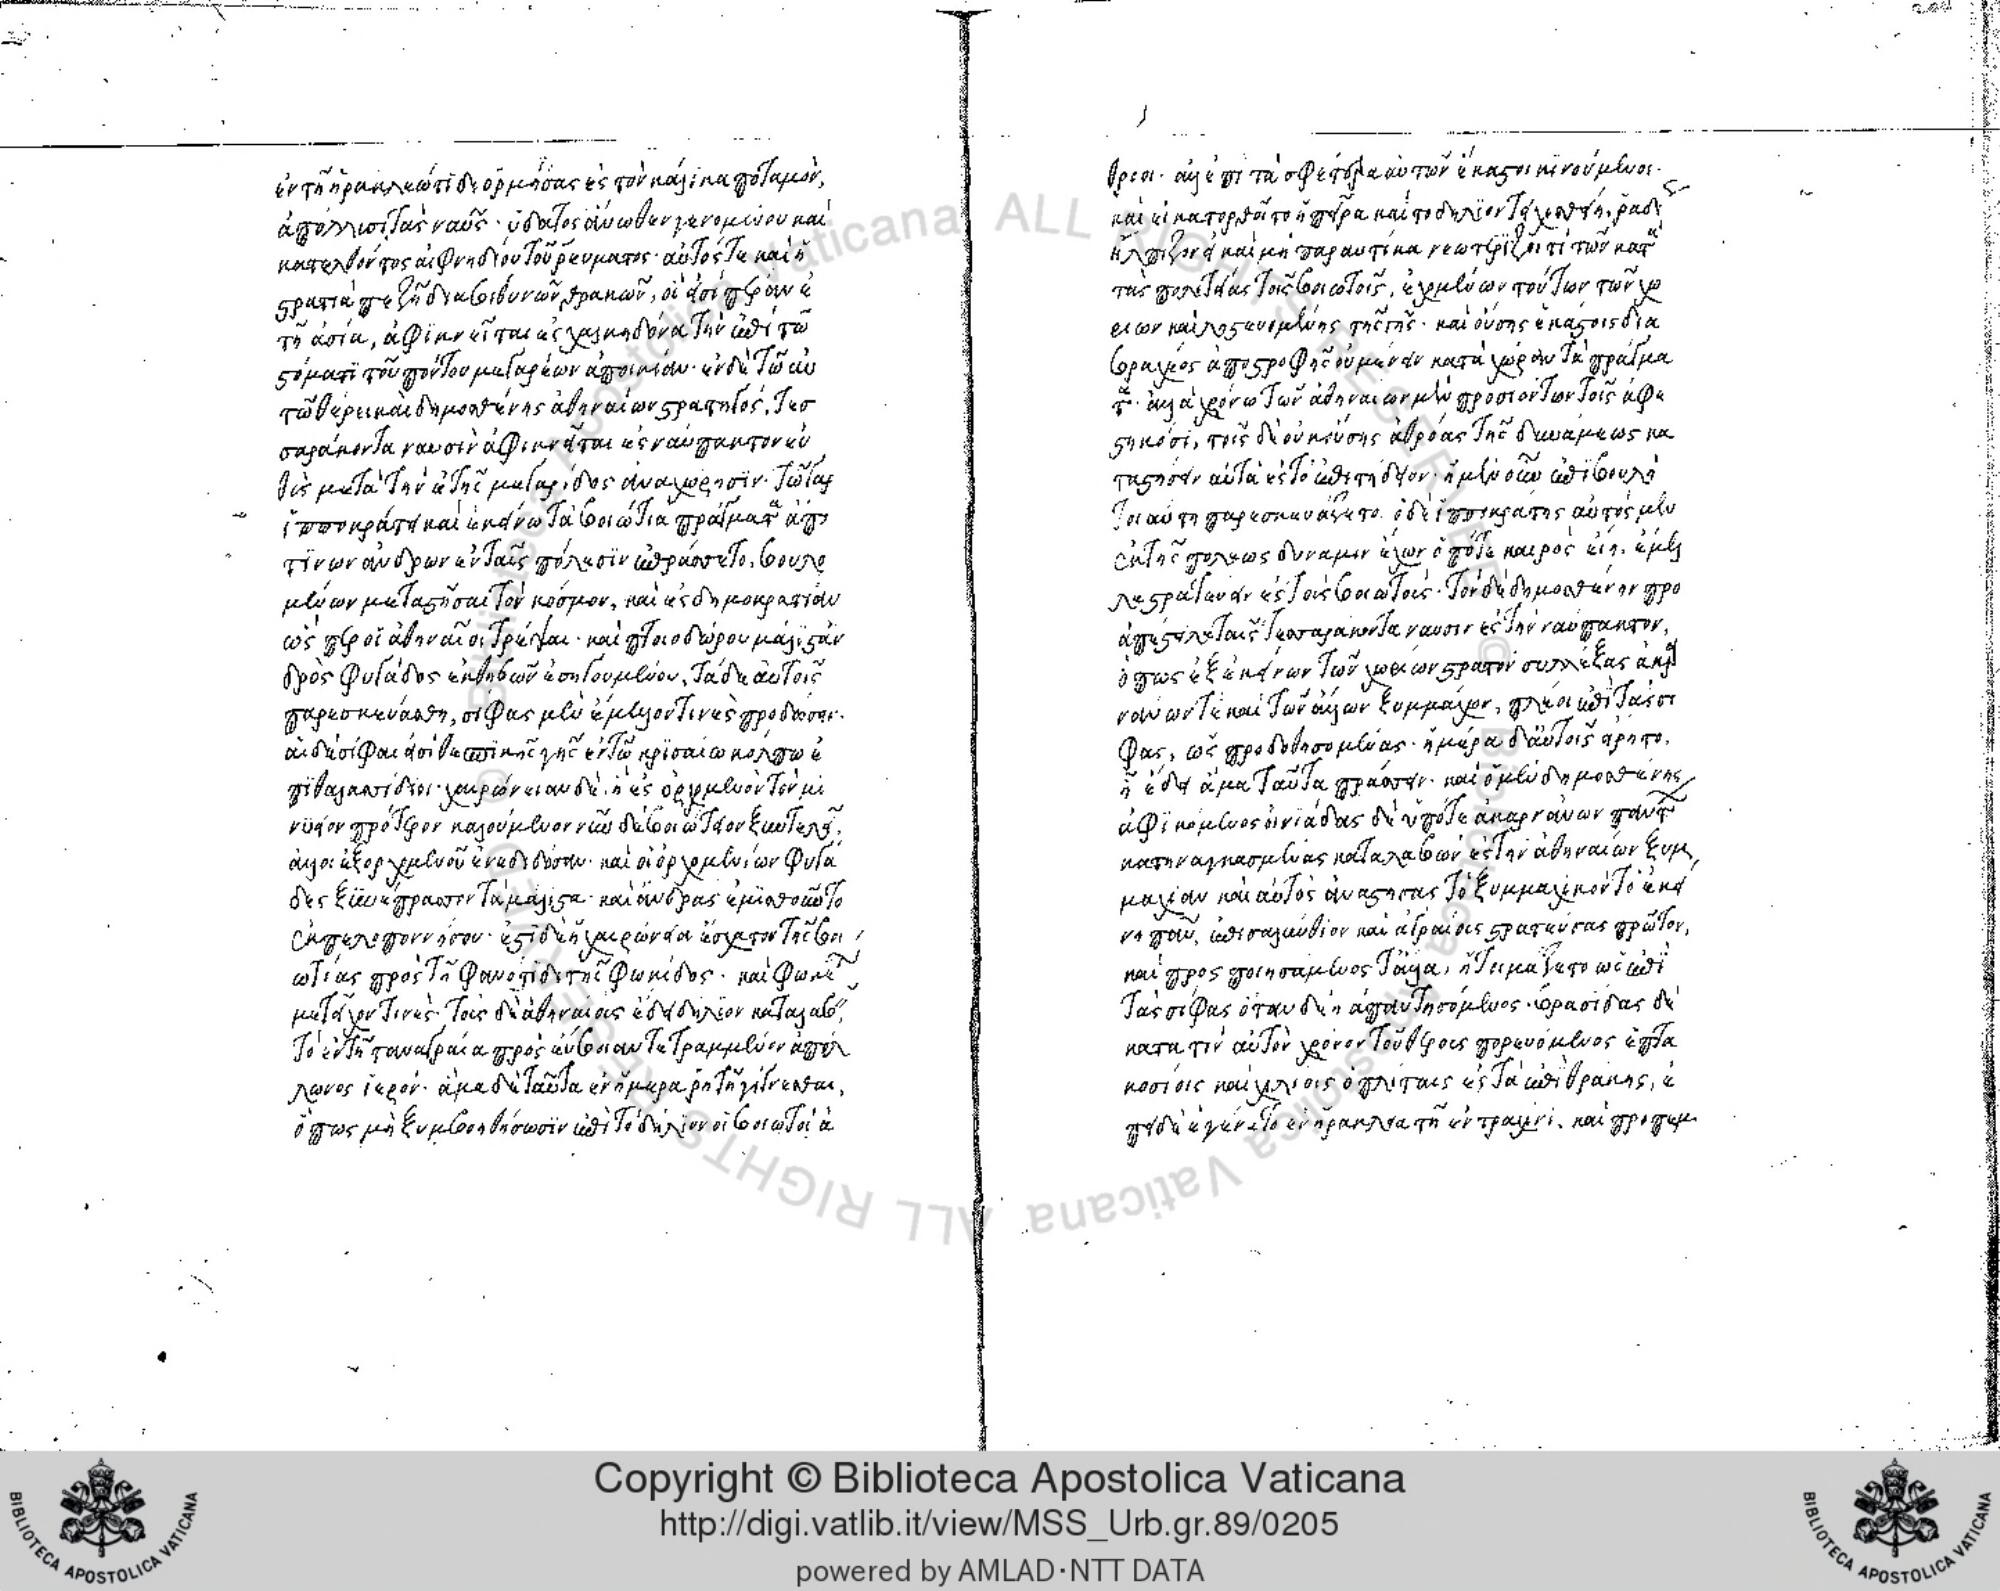 ἐν τῆ ἡρακλεώτιδι ὁρμήσας ἐς τὸν κάληκα ποταμὸν,
ἀπόλλυσι τὰς ναῦς · ὕδατος ἄνωθεν γενομένου καὶ
κατελθόντος αἰφνηδίου τοῦ ῥεύματος · αὐτός τε καὶ ἡ
στρατιὰ πεζῆ διὰ βιθυνῶν θρακῶν, οἵ εἰσι πέραν ἐν
τῆ ἀσία, ἀφικνεῖται ἐς χαλκηδόνα τὴν ἐπὶ τῶ
στόματι τοῦ πόντου μεγαρέων ἀποικίαν · ἐν δὲ τῶ αὐ
τῶ θέρει καὶ δημοσθένης ἀθηναίων στρατηγός, τεσ
σαράκοντα ναυσὶν ἀφικνεῖται ἐς ναύπακτον εὐ
θὺς μετὰ τὴν ἐκ τῆς μεγαρίδος ἀναχώρησιν · τῶ γὰρ
ἱπποκράτει καὶ ἐκείνω τὰ βοιώτια πράγματα ἀπό
τινων ἀνδρῶν ἐν ταῖς πόλεσιν ἐπράσσετο, βουλο
μένων μεταστῆσαι τὸν κόσμον, καὶ ἐς δημοκρατίαν
ὥσπερ οἱ ἀθηναῖοι τρέψαι · καὶ πτοιοδώρου μάλιστ' ἀν
δρὸς φυγάδος ἐκ θηβῶν ἐσηγουμένου, τάδε αὐτοῖς
παρεσκευάσθη, σίφας μὲν ἔμελλον τινὲς προδώσειν ·
αἱ δὲ σίφαι εἰσὶ θεσπικῆς γῆς ἐν τῶ κρισαίω κόλπω ἐ
πιθαλασσίδιοι · χαιρώνειαν δὲ, ἣ ἐς ὀρχομενὸν τὸν μι
νύειον πρότερον καλούμενον νῦν δὲ βοιώτιον ξυντελεῖ,
ἄλλοι ἐξ ὀρχομενοῦ ἐνεδίδοσαν · καὶ οἱ ὀρχομενίων φυγά
δες ξυνέπρασσον τὰ μάλιστα · καὶ ἄνδρας ἐμισθοῦντο
ἐκ πελοποννήσου · ἔστι δὲ ἡ χαιρώνεια ἔσχατον τῆς βοι
ωτίας πρὸς τῆ φανοτίδι τῆς φωκίδος · καὶ φωκέων
μετεῖχον τινὲς · τοὺς δὲ ἀθηναίους ἔδει δήλιον καταλαβεῖν,
τὸ ἐν τῆ ταναγραία πρὸς εὔβοιαν τετραμμένον ἀπόλ
λωνος ἱερόν · ἅμα δὲ ταῦτα ἐν ἡμέρα ῥητῆ γίγνεσθαι,
ὅπως μὴ ξυμβοηθήσωσιν ἐπὶ τὸ δήλιον οἱ βοιωτοὶ ἀ
θρόοι · ἀλλ' ἐπὶ τὰ σφέτερα αὐτῶν ἕκαστοι κινούμενοι ·
καὶ εἰ κατορθοῖτο ἡ πεῖρα καὶ τὸ δήλιον τειχισθείη, ῥαδίως
ἤλπιζον εἰ καὶ μὴ παραυτίκα νεωτερίζοιτό τι τῶν κατὰ
τὰς πολιτείας τοῖς βοιωτοῖς, ἐχομένων τούτων τῶν χω
ρίων καὶ ληστευομένης τῆς γῆς · καὶ οὔσης ἑκάστοις διὰ
βραχέος ἀποστροφῆς οὐ μένειν κατὰ χώραν τὰ πράγμα
τα · ἀλλὰ χρόνω τῶν ἀθηναίων μὲν προσιόντων τοῖς ἀφε
στηκόσι, τοῖς δὲ οὐκ οὔσης ἀθρόας τῆς δυνάμεως κα
ταστήσειν αὐτὰ ἐς τὸ ἐπιτήδειον · ἡ μὲν οὖν ἐπιβουλὴ
τοιαύτη παρεσκευάζετο · ὁ δὲ ἱπποκράτης αὐτὸς μὲν
ἐκ τῆς πόλεως δύναμιν ἔχων ὁπότε καιρὸς εἴη, ἔμελ
λε στρατεύειν ἐς τοὺς βοιωτούς · τὸν δὲ δημοσθένην προ
ἀπέστειλε ταῖς τεσσαράκοντα ναυσὶν ἐς τὴν ναύπακτον,
ὅπως ἐξ ἐκείνων τῶν χωρίων στρατὸν συλλέξας ἀκαρ
νάνων τε καὶ τῶν ἄλλων ξυμμάχων, πλέοι ἐπὶ τὰς σί
φας, ὡς προδοθησομένας · ἡμέρα δ' αὐτοῖς εἴρητο,
ἧ ἔδει ἅμα ταῦτα πράσσειν · καὶ ὁ μὲν δημοσθένης
ἀφικόμενος οἰνιάδας δὲ ὑπό τε ἀκαρνάνων πάντων
κατηναγκασμένας καταλαβὼν ἐς τὴν ἀθηναίων ξυμ
μαχίαν καὶ αὐτὸς ἀναστήσας τὸ ξυμμαχικὸν τὸ ἐκεί
νη πᾶν, ἐπὶ σαλύνθιον καὶ ἀγραίους στρατεύσας πρῶτον,
καὶ προσποιησάμενος τἆλλα, ἡτοιμάζετο ὡς ἐπὶ
τὰς σίφας ὅταν δέη ἀπαντησόμενος · βρασίδας δὲ
κατὰ τὸν αὐτὸν χρόνον τοῦ θέρους πορευόμενος ἑπτα
κοσίοις καὶ χιλίοις ὁπλίταις ἐς τὰ ἐπὶ θράκης, ἐ
πειδὴ ἐγένετο ἐν ἡρακλεία τῆ ἐν τραχῖνι, καὶ προπέμ
Copyright © Biblioteca Apostolica Vaticana
http://digi.vatlib.it/view/MSS_Urb.gr.89/0205
powered by AMLAD·NTT DATA